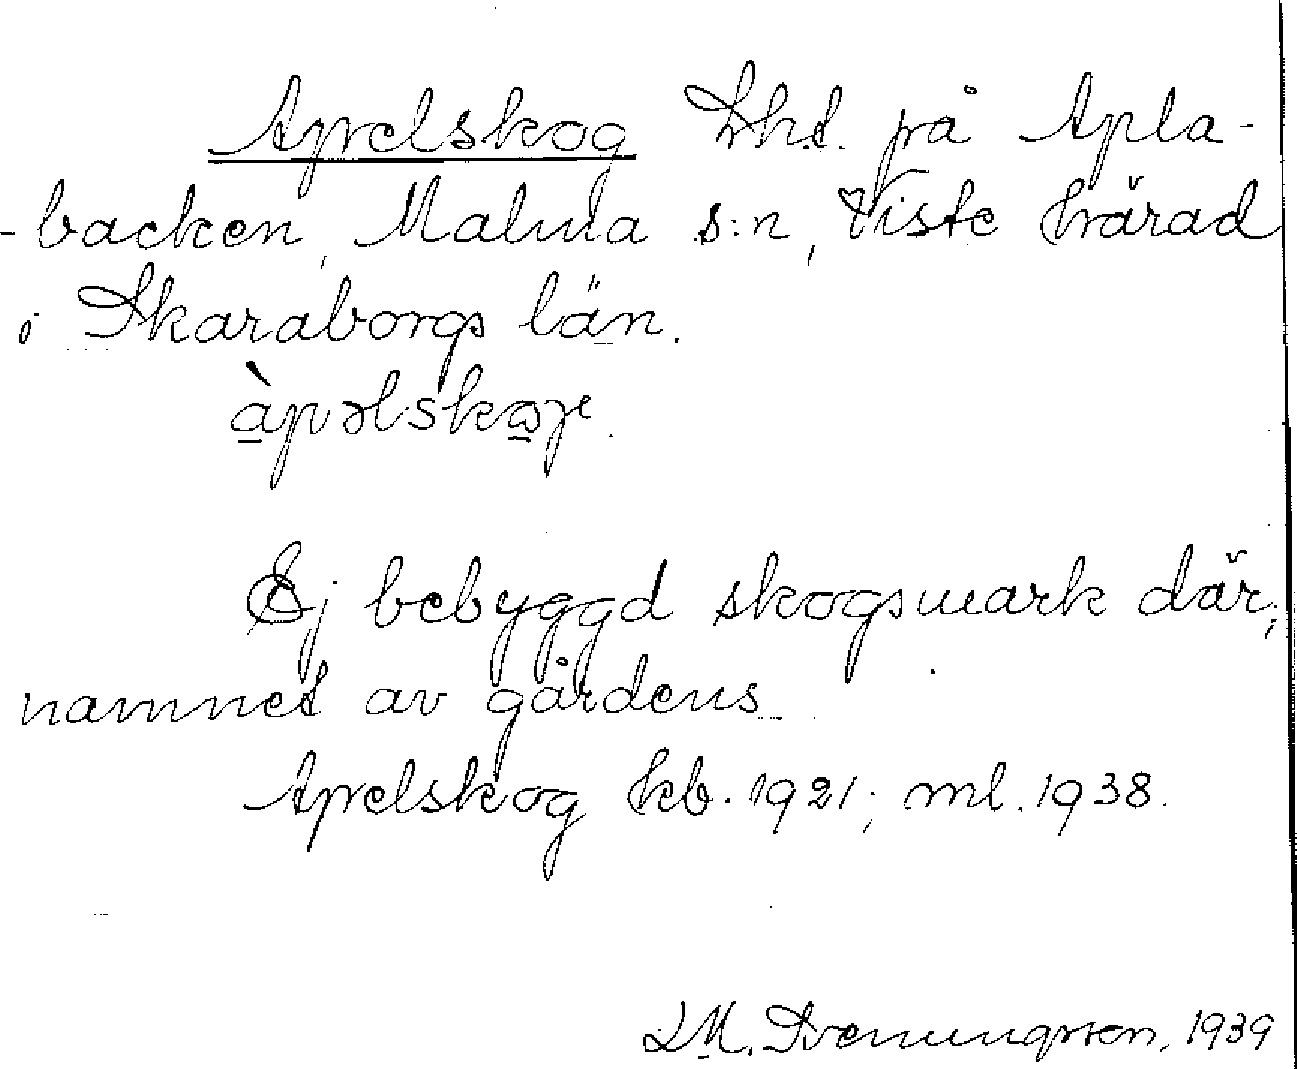 Apelskog Lht. på Apla-
-backen, Malma s:n, Viste härad
i Skaraborgs län.
àpəlskoje.
Ej bebyggd skogsmark där;
namnet av gårdens
Apelskog kb. 1921; ml. 1938.
L M. Svenungsson, 1939